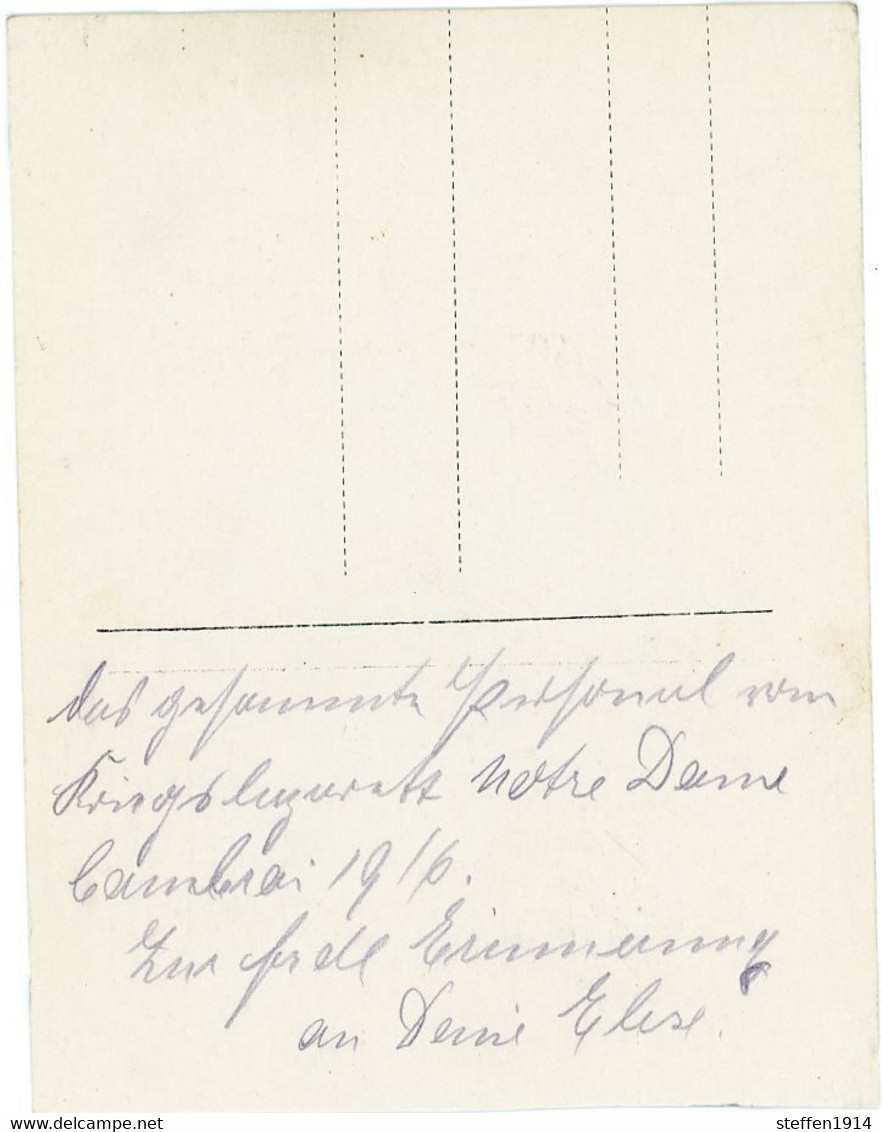 das gesammte Personal vom
Kriegslazarett Notre Dame
Cambrai 1916.
Zur frdl Erinnerung
an Deine Else.
delcampe.net
steffen1914